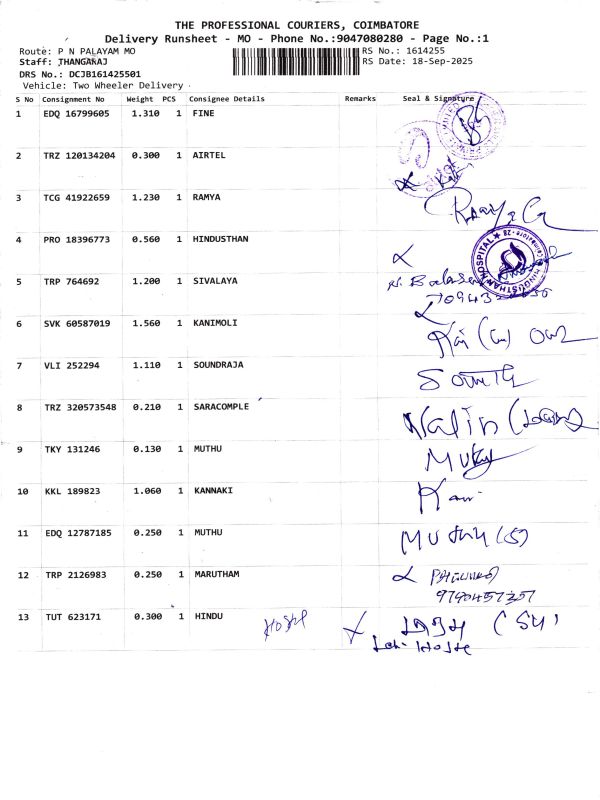 THE PROFESSIONAL COURIERS, COIMBATORE
Delivery Runsheet - MO - Phone No.:9047080280 - Page No.:1
Route: P N PALAYAM MO RS No.: 1614255
Staff: THANGARAJ RS Date: 18-Sep-2025
DRS No.: DCJB161425501
Vehicle: Two Wheeler Delivery
S No Consignment No Weight PCS Consignee Details Remarks Seal & Signature
1 EDQ 16799605 1.310 1 FINE
2 TRZ 120134204 0.300 1 AIRTEL
3 TCG 41922659 1.230 1 RAMYA
4 PRO 18396773 0.560 1 HINDUSTHAN
HINDUSTHAN HOSPITAL ★ Coimbatore - 28
5 TRP 764692 1.200 1 SIVALAYA
6 SVK 60587019 1.560 1 KANIMOLI
7 VLI 252294 1.110 1 SOUNDRAJA
8 TRZ 320573548 0.210 1 SARACOMPLE
Nalin
9 TKY 131246 0.130 1 MUTHU
10 KKL 189823 1.060 1 KANNAKI
11 EDQ 12787185 0.250 1 MUTHU
12 TRP 2126983 0.250 1 MARUTHAM
13 TUT 623171 0.300 1 HINDU